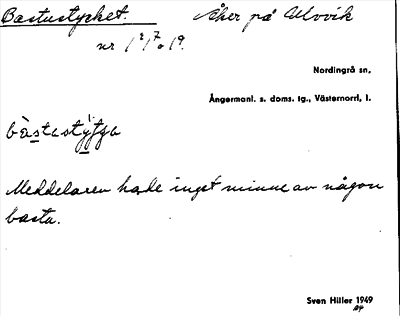 Bastustycket. Åker på Ulvvik
nr 1²⁷o 19.
Nordingrå sn,
Ångermanl. s. doms. tg., Västernorrl, l.
bàstastỳtga
Meddelaren hade inget minne av någon
basta.
Sven Hiller 1949